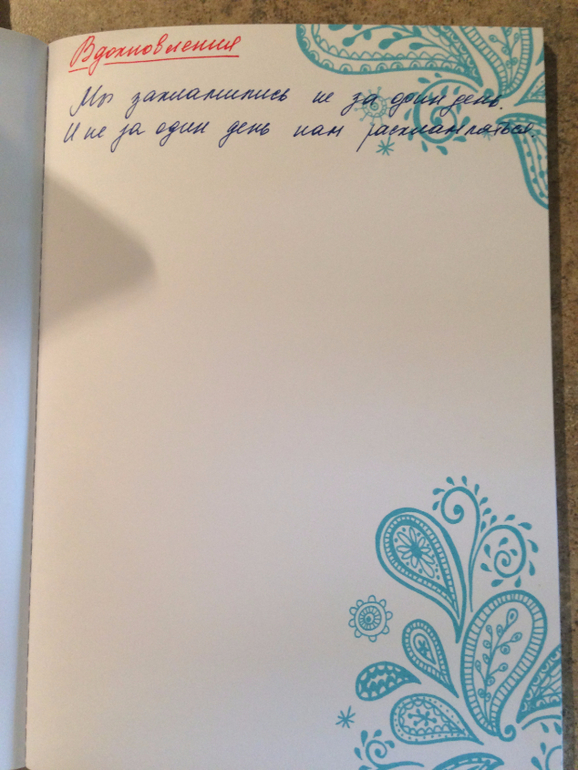 Вдохновления
Мы захламились не за один день.
И не за один день нам расхламляться.